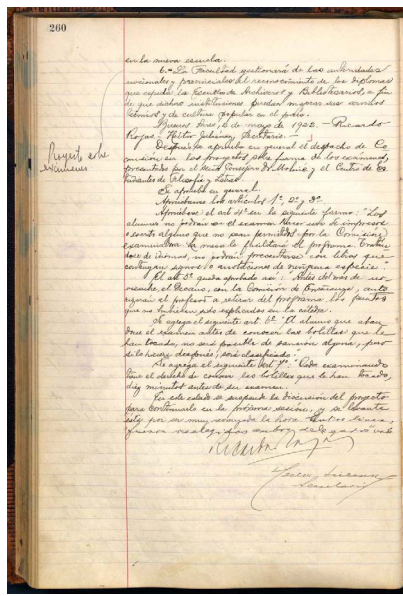 260
en la nueva escuela.
6.º La Facultad gestionará de las autoridades
nacionales y provinciales el reconocimiento de los diplomas
que expida la Escuela de Archiveros y Bibliotecarios, a fin
de que dichas instituciones puedan mejorar sus servicios
técnicos y de cultura popular en el país.
Buenos Aires, de mayo de 1922. — Ricardo
Rojas — Héctor Secretario. —
Proyecto sobre
exámenes
Después se aprueba en general el despacho de Co
misión en los proyectos sobre forma de los exámenes,
presentados por el Consejero y el Centro de Es
tudiantes de Filosofía y Letras.
Se aprueba en general.
Apruébanse los artículos 1º, 2º y 3º.
Apruébase el art. 4º en la siguiente forma: "Los
alumnos no podrán en el examen hacer uso de impresos
o escrito alguno que no sean permitidos por la Comisión
examinadora. La mesa le facilitará el programa. Tratán
dose de idiomas, no podrán presentarse con libros que
contengan signos o anotaciones de ninguna especie."
El art. 5º queda aprobado así: "Antes del mes de no
viembre, el Decano, con la Comisión de Enseñanza, auto
rizarán al profesor a retirar del programa los puntos
que no hubieran sido explicados en la cátedra.
Se agrega el siguiente art. 6º: "El alumno que aban
done el examen antes de conocer las bolillas que le
han tocado, no será pasible de sanción alguna, pero
si lo hace después, será clasificado."
Se agrega el siguiente art. 7º: "Cada examinando
tiene el derecho de conocer las bolillas que le han tocado,
diez minutos antes de su examen.
En este estado se suspende la discusión del proyecto
para continuarla en la próxima sesión, y se levanta
ésta por ser muy avanzada la hora.
Ricardo Rojas
Secretario